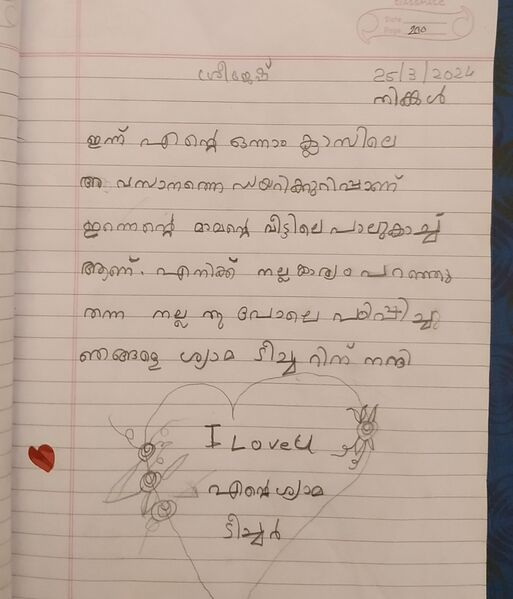 classmate
Date
Page 200
ശ്രീജേഷ് 25/3/2024
തിങ്കൾ
ഇന്ന് എന്റെ ഒന്നാം ക്ലാസിലെ
അ വസാനത്തെ ഡയറിക്കുറിപ്പാണ്
ഇന്നെന്റെ മാമന്റെ വീട്ടിലെ പാലുകാച്ച്
ആണ്. എനിക്ക് നല്ല കാര്യം പറഞ്ഞു
തന്ന നല്ല തു പോലെ പഠിപ്പിച്ച
ഞങ്ങളെ ശ്യാമ ടീച്ച റിന് നന്ദി
I LoveU
എന്റെ ശ്യാമ
ടീച്ചർ